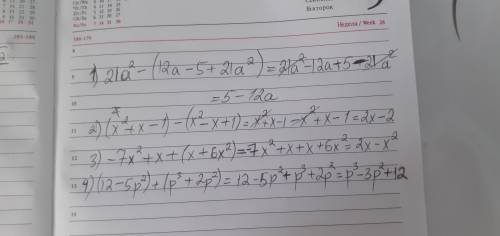 Вторник
Неделя / Week 26
180-179
8
9 1) 21a² - (12a - 5 + 21a²) = 21a² - 12a + 5 - 21a²
10 = 5 - 12a
11 2) (x² + x - 1) - (x² - x + 1) = x² + x - 1 - x² + x - 1 = 2x - 2
12 3) -7x² + x + (x + 6x²) = -7x² + x + x + 6x² = 2x - x²
13 4) (12 - 5p²) + (p³ + 2p²) = 12 - 5p² + p³ + 2p² = p³ - 3p² + 12
14